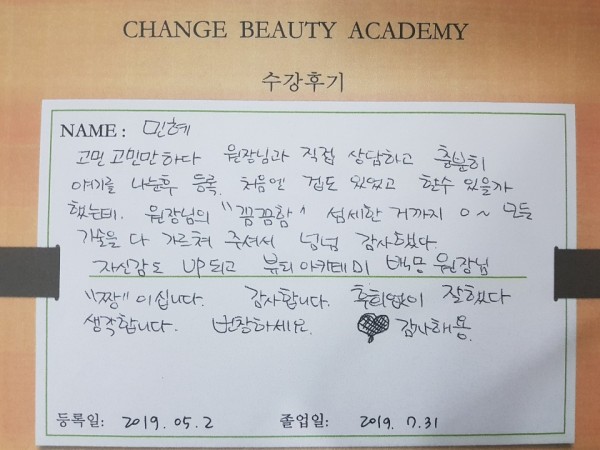 CHANGE BEAUTY ACADEMY
수강후기
NAME : 민혜
고민 고민만하다 원장님과 직접 상담하고 충분히
얘기를 나눈후 등록. 처음엔 겁도 있었고 할수 있을까
했는데. 원장님의 "꼼꼼함" 섬세한 거까지 ㅇ~ 모든
기술을 다 가르쳐 주셔서 넘넘 감사했다.
자신감도 UP되고 뷰티아카데미 원장님
"짱"이십니다. 감사합니다. 후회없이 잘했다
생각합니다. 번창하세요. 감사해용.
등록일: 2019. 05. 2 졸업일: 2019. 7. 31